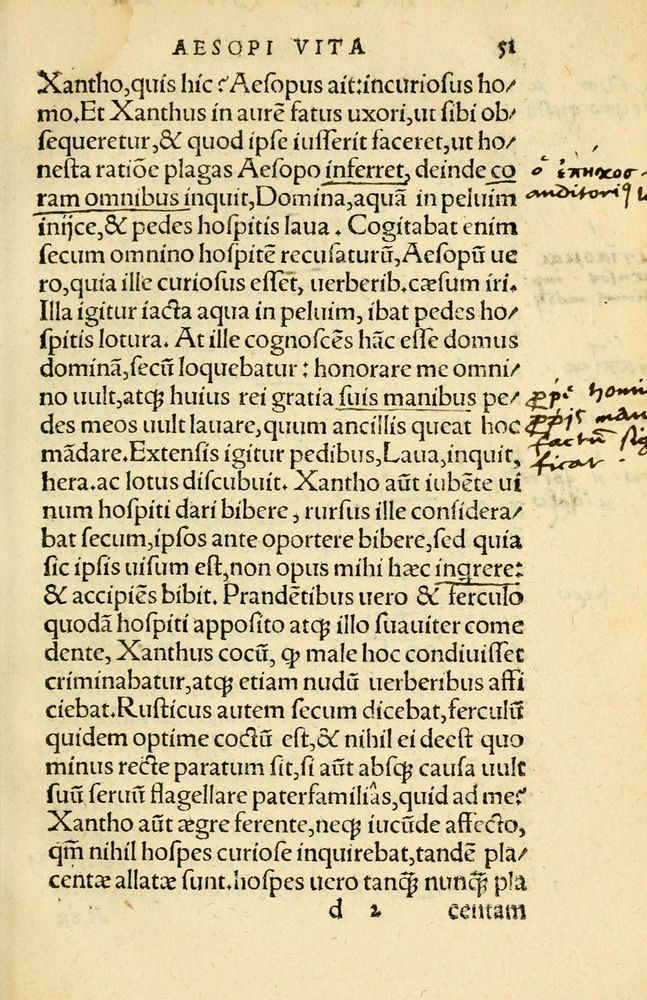 AESOPI VITA 51
Xantho,quis hic? Aesopus ait:incuriosus ho/
mo.Et Xanthus in aurẽ fatus uxori,ut sibi ob/
sequeretur,& quod ipse iusserit faceret,ut ho/
nesta ratiõe plagas Aesopo inferret, deinde co
ram omnibus inquit,Domina,aquã in peluim
inijce,& pedes hospitis laua. Cogitabat enim
secum omnino hospitẽ recusaturũ,Aesopũ ue
ro,quia ille curiosus esset, uerberib.cæsum iri.
Illa igitur iacta aqua in peluim, ibat pedes ho/
spitis lotura. At ille cognoscẽs hãc esse domus
dominã,secũ loquebatur: honorare me omni/
no uult,atqꝫ huius rei gratia suis manibus pe/
des meos uult lauare,quum ancillis queat hoc
mãdare.Extensis igitur pedibus,Laua,inquit,
hera.ac lotus discubuit. Xantho aũt iubẽte ui
num hospiti dari bibere, rursus ille considera/
bat secum,ipsos ante oportere bibere,sed quia
sic ipsis uisum est,non opus mihi hæc inqrere:
& accipiẽs bibit. Prandẽtibus uero & ferculo
quodã hospiti apposito atqꝫ illo suauiter come
dente, Xanthus cocũ, qꝫ male hoc condiuisset
criminabatur,atqꝫ etiam nudũ uerberibus affi
ciebat.Rusticus autem secum dicebat,ferculũ
quidem optime coctũ est,& nihil ei deest quo
minus recte paratum sit,si aũt absqꝫ causa uult
suũ seruũ flagellare paterfamiliâs,quid ad me?
Xantho aũt ægre ferente,neqꝫ iucũde affecto,
qm̃ nihil hospes curiose inquirebat,tandẽ pla/
centæ allatæ sunt.hospes uero tanqꝫ̃ nunqꝫ̃ pla
d 2 centam
ὁ ἐπηκοος
auditoriqꝫ
homi
man
factũ sig
ficat.